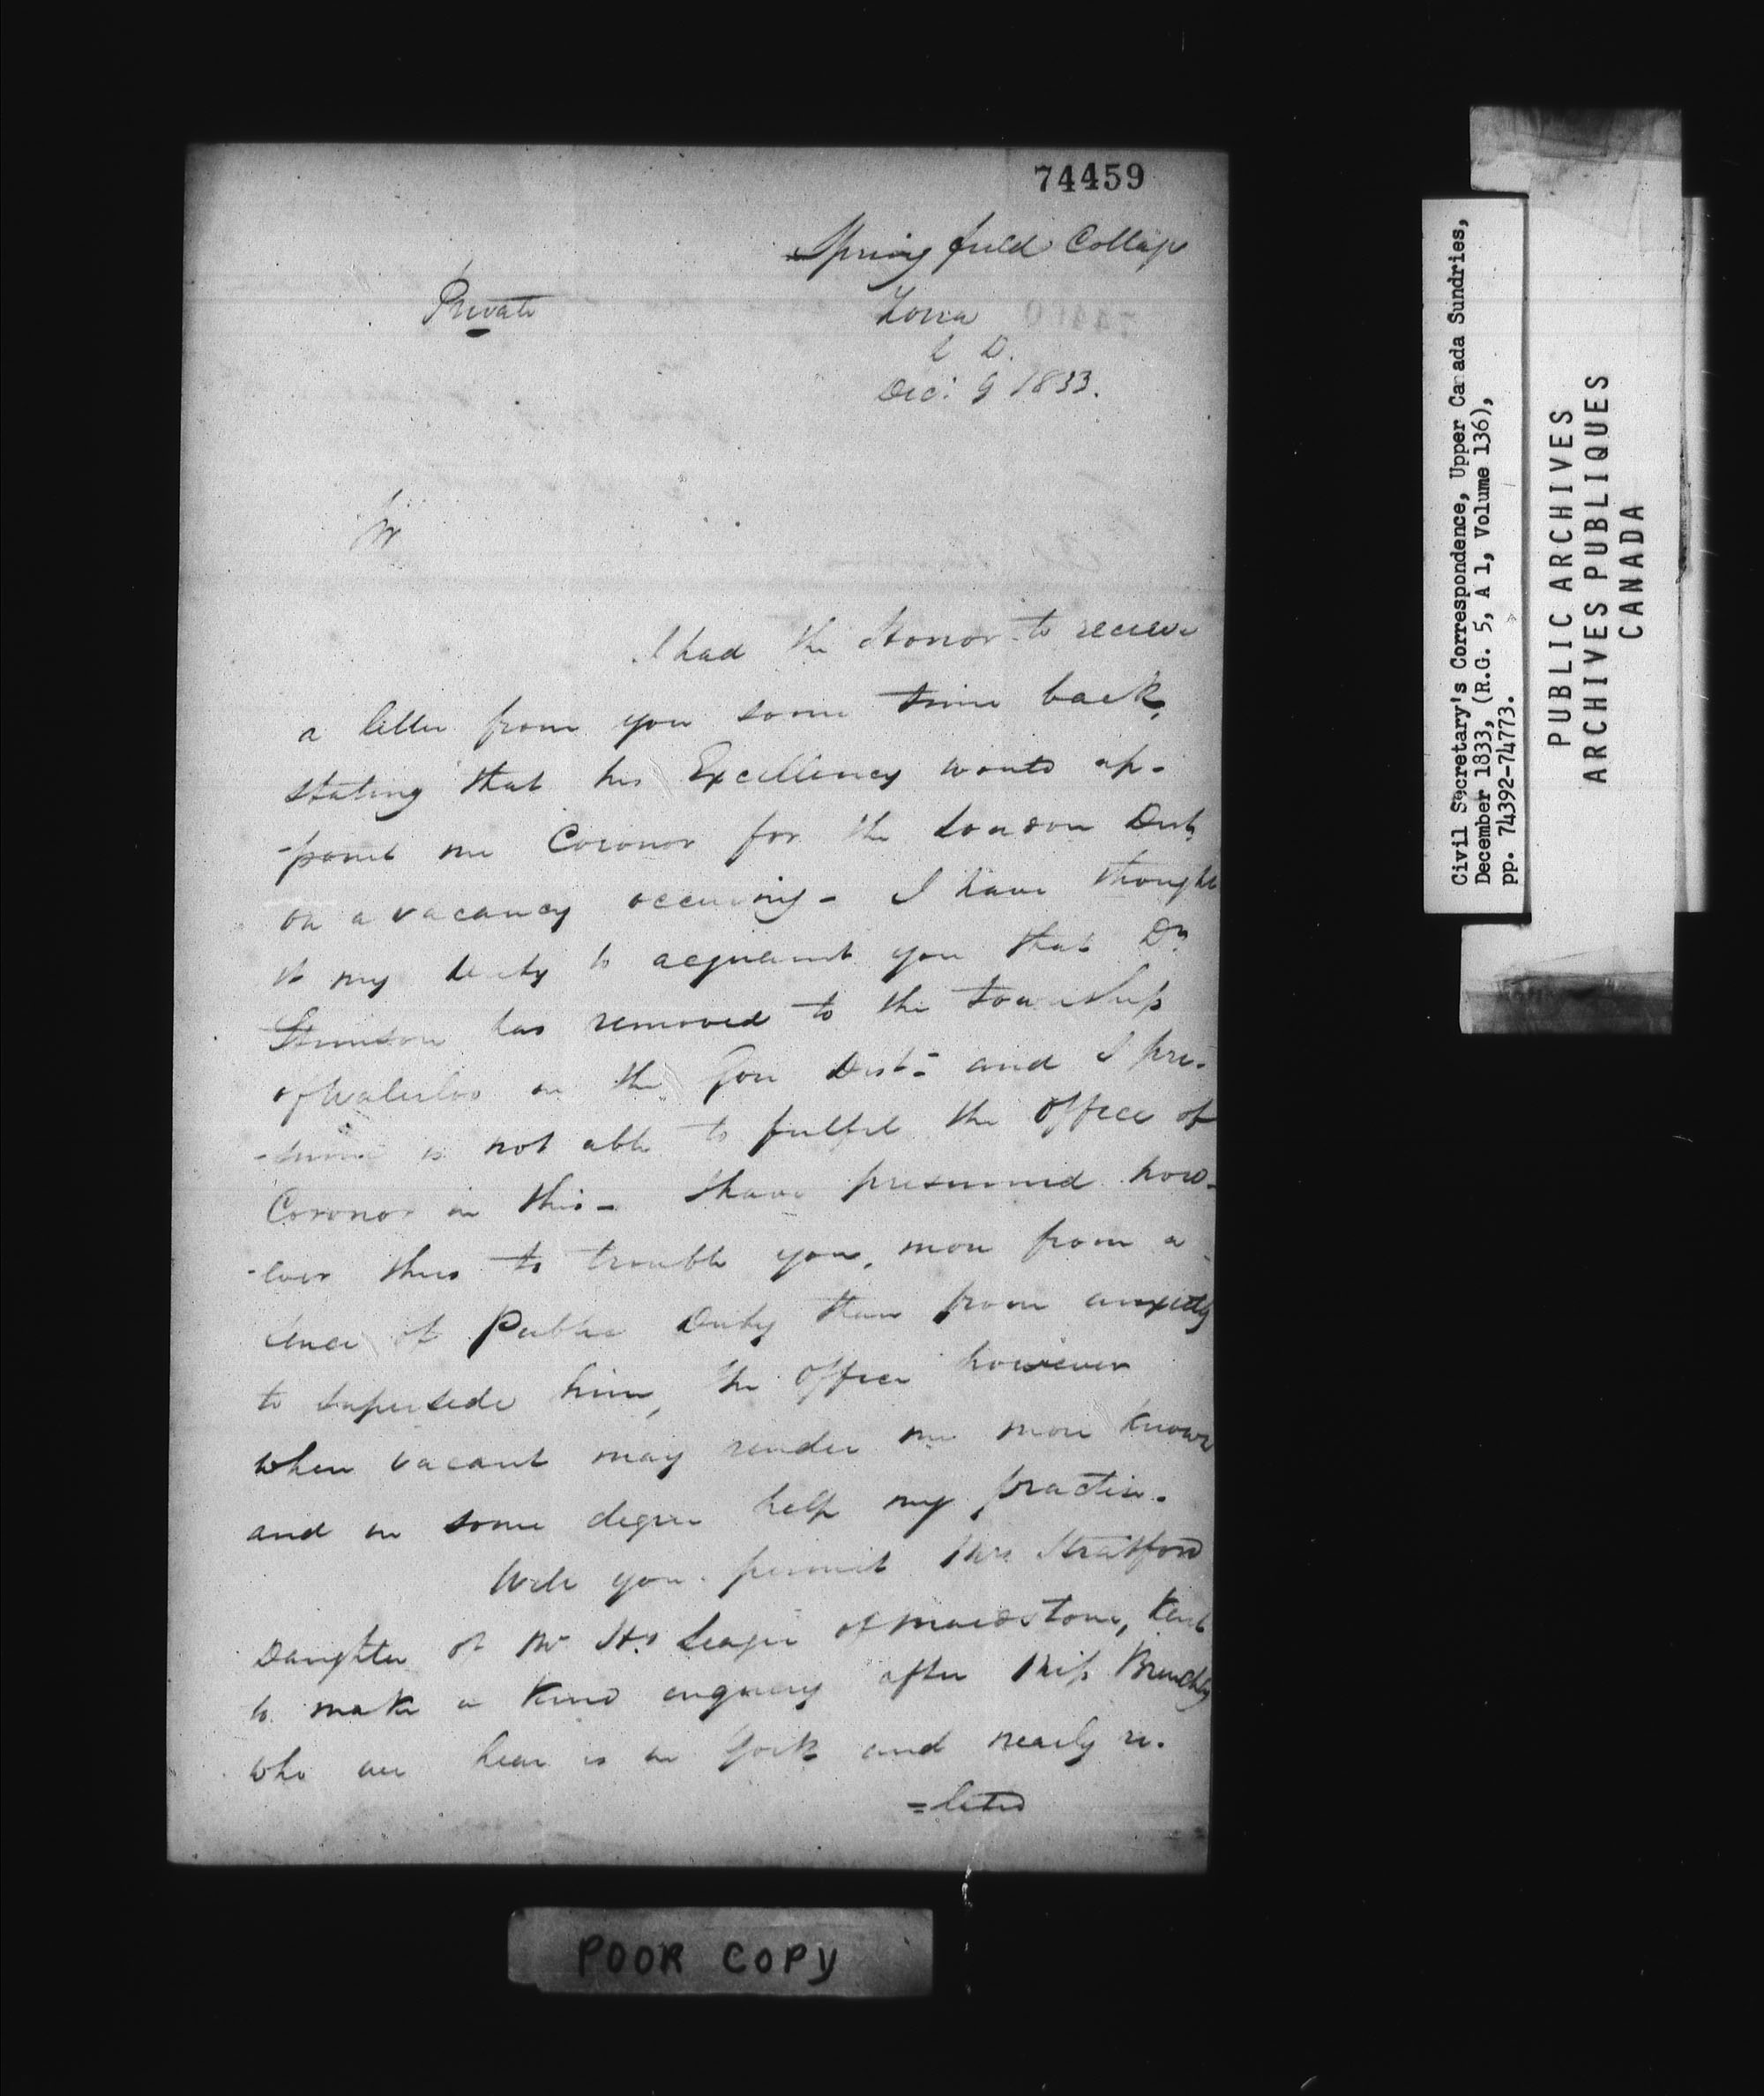 74459
Spring field Cottage
Private
Zorra
L D.
Dec: 9 1833.
Sir
I had the Honor to receive
a letter from you some time back,
stating that his Excellency would ap-
-point me Coronor for the London Dist
on a vacancy occuring - I have thought
it my duty to acquaint you that Dr
Stimson has removed to the township
of Waterloo in the Gore Dist- and I pre-
-sume is not able to fulfil the Office of
Coronor in this - I have presumed how-
-ever thus to trouble you, more from a
sence of Public Duty than from anxiety
to supersede him, the Office however
when vacant may render me more known
and in some degree help my practice.
Will you permit Mrs Stratford
Daughter of Mr Hy of Maidstone, Kent
to make a kind enquiry after Miss Brenchley
who we hear is in York and nearly re-
=lated
POOR COPY
Civil Secretary's Correspondence, Upper Canada Sundries,
December 1833, (R.G. 5, A 1, Volume 136),
pp. 74392-74773.
PUBLIC ARCHIVES
ARCHIVES PUBLIQUES
CANADA